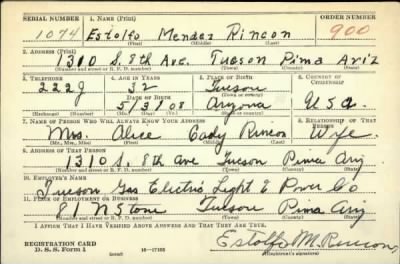 SERIAL NUMBER 1. NAME (Print) ORDER NUMBER
1074 Estolfo Mendez Rincon 900
(First) (Middle) (Last)
2. ADDRESS (Print)
1310 S. 8th Ave. Tucson Pima Ariz
(Number and street or R. F. D. number) (Town) (County) (State)
3. TELEPHONE 4. AGE IN YEARS 5. PLACE OF BIRTH 6. COUNTRY OF CITIZENSHIP
222J 32 Tucson
DATE OF BIRTH (Town or county)
5/31/08 Arizona USA.
(Exchange) (Number) (Mo.) (Day) (Yr.) (State or country)
7. NAME OF PERSON WHO WILL ALWAYS KNOW YOUR ADDRESS 8. RELATIONSHIP OF THAT PERSON
Mrs. Alice Cady Rincon Wife.
(Mr., Mrs., Miss) (First) (Middle) (Last)
9. ADDRESS OF THAT PERSON
1310 S. 8th Ave Tucson Pima Ariz
(Number and street or R. F. D. number) (Town) (County) (State)
10. EMPLOYER'S NAME
Tucson Gas Electric Light & Power Co
11. PLACE OF EMPLOYMENT OR BUSINESS
81 N Stone Tucson Pima Ariz
(Number and street or R. F. D. number) (Town) (County) (State)
I AFFIRM THAT I HAVE VERIFIED ABOVE ANSWERS AND THAT THEY ARE TRUE.
REGISTRATION CARD
D. S. S. Form 1 (over) 16—17105 Estolfo M. Rincon,
(Registrant's signature)